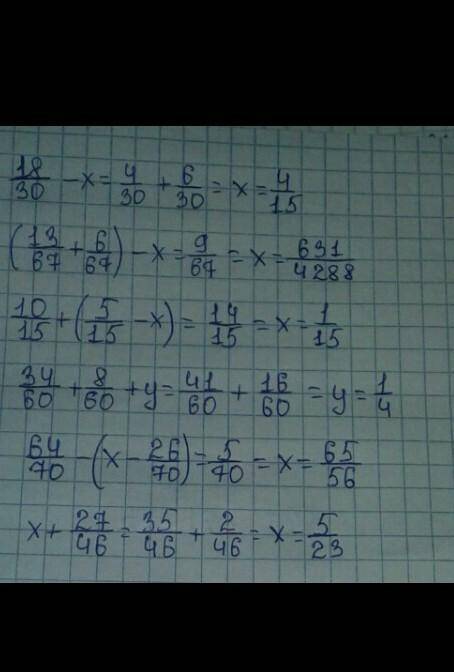 18/30 - x = 4/30 + 6/30 = x = 4/15
(13/67 + 6/67) - x = 9/67 = x = 631/4288
10/15 + (5/15 - x) = 14/15 = x = 1/15
34/60 + 8/60 + y = 41/60 + 16/60 = y = 1/4
64/70 - (x - 26/70) = 5/70 = x = 65/56
x + 27/46 = 35/46 + 2/46 = x = 5/23